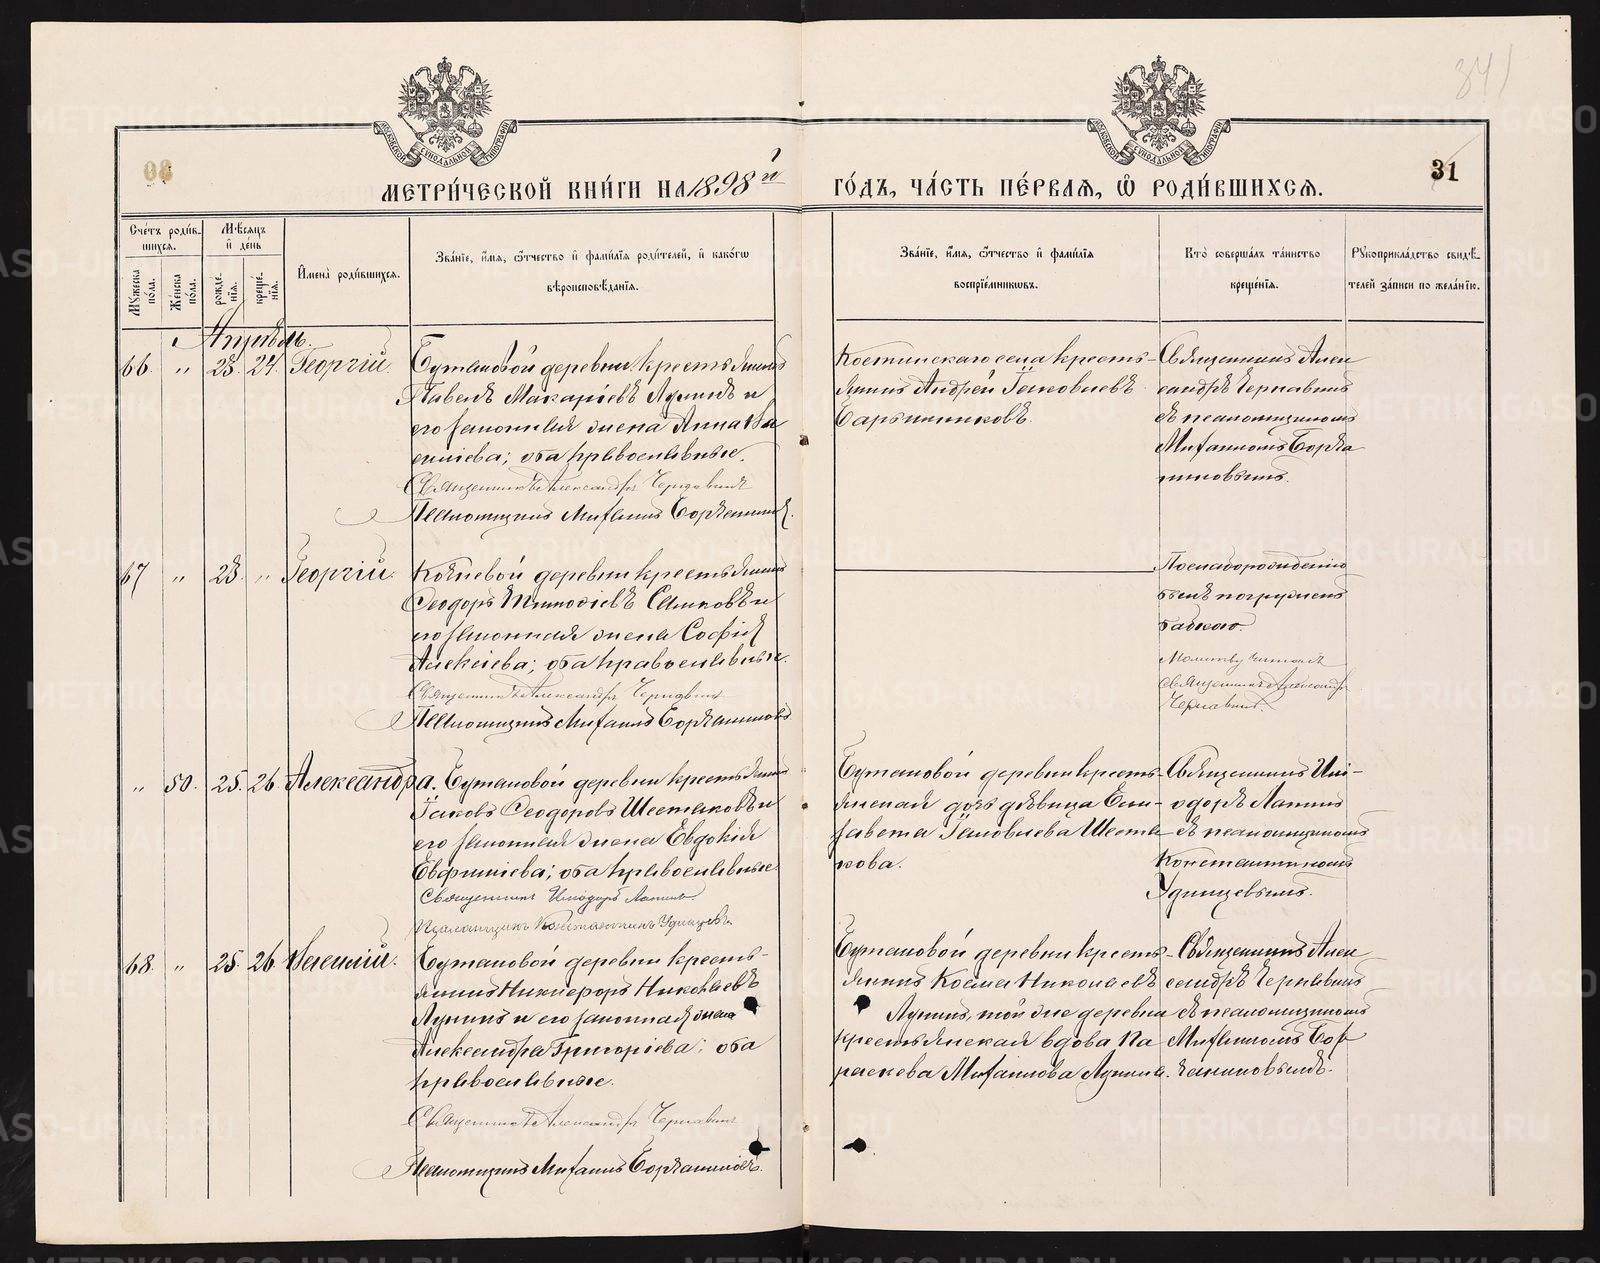 341
31
МЕТРИ́ЧЕСКОЙ КНИ́ГИ НА 1898 й
ГО́ДЪ, ЧА́СТЬ ПЕ́РВАЯ, Ѽ РОДИ́ВШИХСЯ.
Сче́тъ роди́в-
шихся.
Му́жеска
по́ла.
Же́нска
по́ла.
Мѣ́сяцъ
и҆ де́нь
рожде́-
нїя.
креще́-
нїя.
И҆мена̀ роди́вшихся.
Зва́нїе, и҆́мя, ѻ҆́тчество и҆ фами́лїя роди́телей, и҆ како́гѡ
вѣроисповѣ́данїя.
Зва́нїе, и҆́мя, ѻ҆́тчество и҆ фами́лїя
воспрїе́мникѡвъ.
Кто̀ соверша́лъ та́инство
креще́нїя.
Рꙋкоприкла́дство свидѣ́-
телей за́писи по жела́нїю.
Апрѣль.
66. " 23. 24. Георгій.
Бутаковой деревни крестьянинъ
Павелъ Макаріевъ Лунинъ и
его законная жена Анна Ва
силіева; оба православные.
Священникъ Александръ Чернавинъ
Псаломщикъ Михаилъ
Костинскаго села кресть-
янинъ Андрей Іаковлевъ
Барышниковъ.
Священникъ Алек
сандръ Чернавинъ
съ псаломщикомъ
Михаиломъ
67 " 23. " Георгій.
деревни крестьянинъ
Ѳеодоръ Тимоѳіевъ и
его законная жена Софія
Алексіева; оба православные.
Священникъ Александръ Чернавинъ
Псаломщикъ Михаилъ
По слаборожденію
былъ погруженъ
бабкою.
Молитву читалъ
священникъ Александръ
Чернавинъ.
" 50. 25. 26. Александра.
Бутаковой деревни крестьянинъ
Іаковъ Ѳеодоровъ Шестаковъ и
его законная жена Евдокія
Евфиміева; оба православные
Священникъ Исидоръ Лапинъ
Псаломщикъ Константинъ Удинцевъ
Бутаковой деревни кресть-
янская дочь дѣвица Ели-
завета Іаковлева Шеста
кова.
Священникъ Иси-
доръ Лапинъ
съ псаломщикомъ
Константиномъ
Удинцевымъ.
68. " 25 26.
Бутаковой деревни кресть-
янинъ Никифоръ Николаевъ
Лунинъ и его законная жена
Александра Григоріева; оба
православные.
Священникъ Александръ Чернавинъ
Псаломщикъ Михаилъ
Бутаковой деревни кресть-
янинъ Косма Николаевъ
Лунинъ, той же деревни
крестьянская вдова Па
раскева Михаилова Лунина.
Священникъ Алек
сандръ Чернавинъ
съ псаломщикомъ
Михаиломъ
METRIKI.GASO-URAL.RU